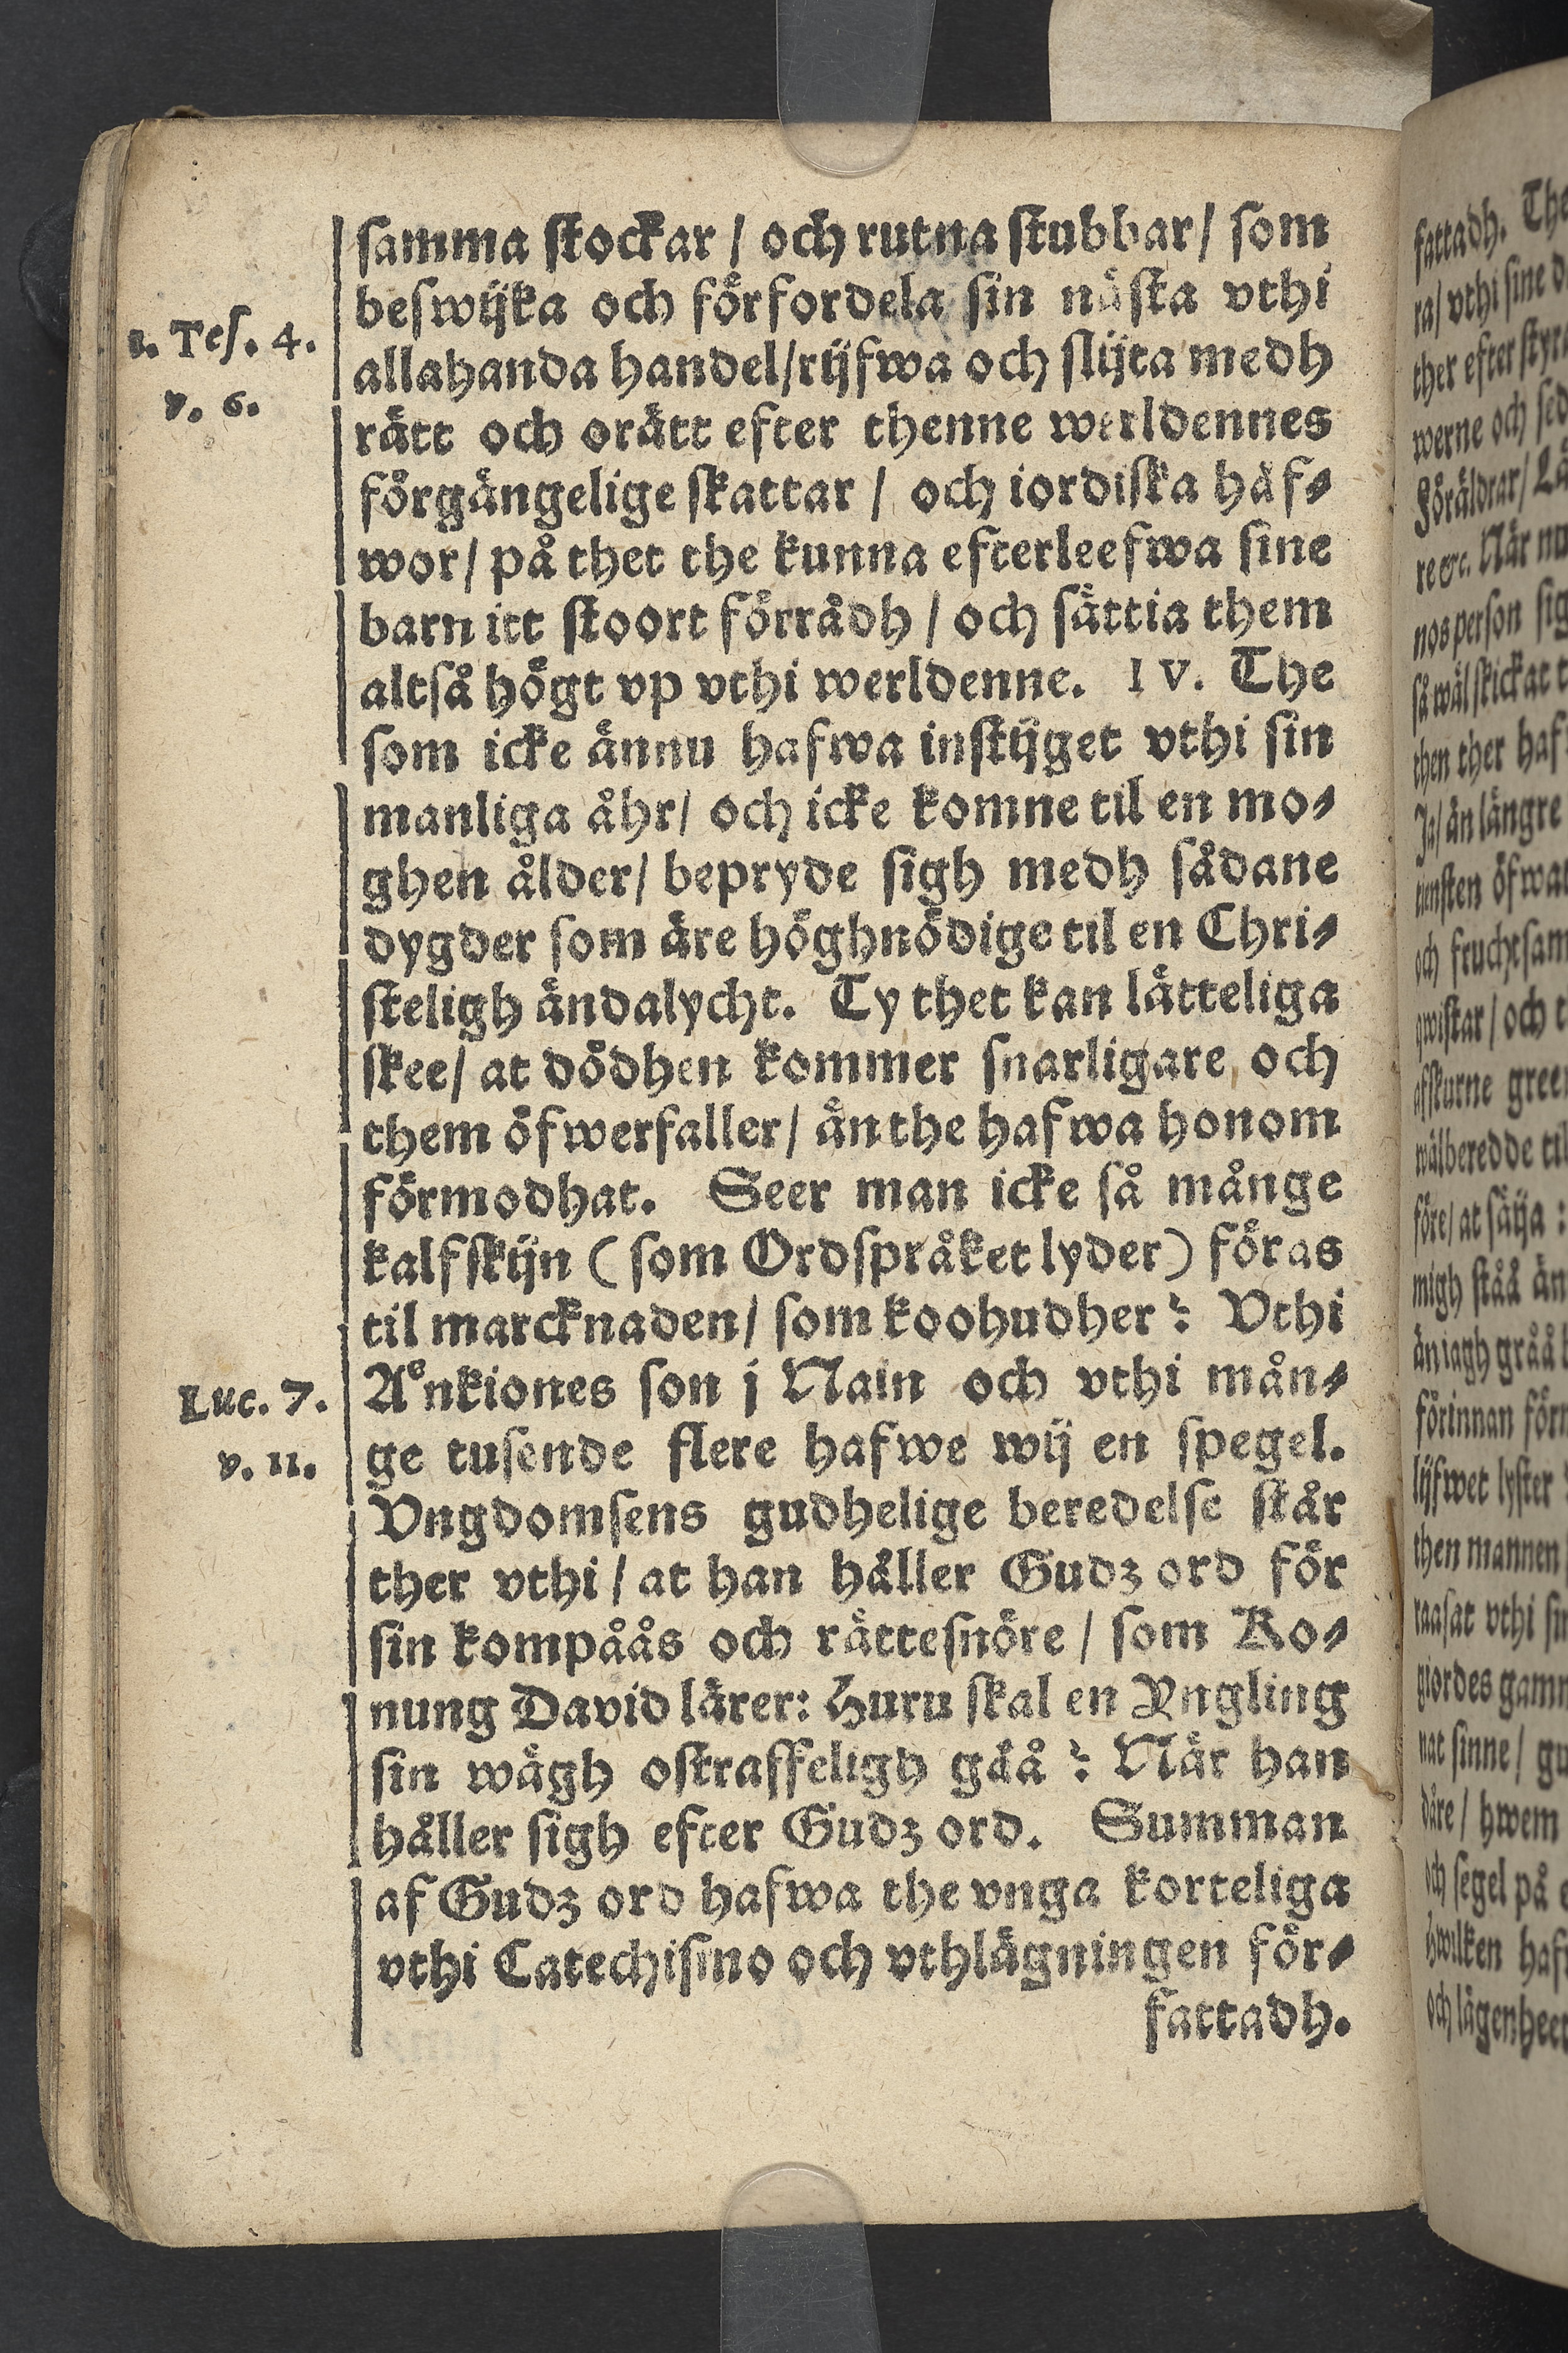 samma stockar / och rutna stubbar / som
beswijka och förfordela sin nästa vthi
1. Tes. 4.
v. 6.
allahanda handel / rijfwa och slijta medh
rätt och orätt efter thenne werldennes
förgängelige skattar / och iordiska håf⸗
wor / på thet the kunna efterleefwa sine
barn itt stoort förrådh / och sättia them
altså högt vp vthi werldenne. IV. The
som icke ännu hafwa instijget vthi sin
manliga åhr / och icke komne til en mo⸗
ghen ålder / bepryde sigh medh sådane
dygder som äre höghnödige til en Chri⸗
steligh ändalycht. Ty thet kan lätteliga
skee / at dödhen kommer snarligare och
them öfwerfaller / än the hafwa honom
förmodhat. Seer man icke så månge
kalfskijn (som Ordspråket lyder) föras
til marcknaden / som koohudher? Vthi
Luc. 7.
v. 11.
Aͤnkiones son j Nain och vthi mån⸗
ge tusende flere hafwe wij en spegel.
Vngdomsens gudhelige beredelse står
ther vthi / at han håller Gudz ord för
sin kompåås och rättesnöre / som Ko⸗
nung David lärer: Huru skal en Yngling
sin wägh ostraffeligh gåå? När han
håller sigh efter Gudz ord. Summan
af Gudz ord hafwa the vnga korteliga
vthi Catechismo och vthlägningen för⸗
fattadh.
fattadh. The
ra / vthi sine
ther efter
werne och
Föräldrar /
re &c. När nu
nos person
så wäl skickat
then ther
Ja / än längre
och
qwistar / och
wälberedde til
före / at säija:
migh ståå än
än iagh gråå
förinnan
lijfwet lyster
then mannen
raasat vthi
giordes
nat sinne /
dåre / hwem
och segel på
hwilken
och lägenheet